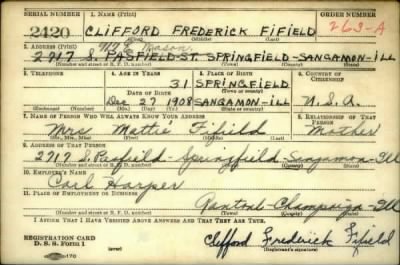 SERIAL NUMBER 1. NAME (Print) ORDER NUMBER
2420 CLIFFORD FREDERICK FIFIELD 263-A
(First) (Middle) (Last)
2. ADDRESS (Print) Mason
2717 S. PASFIELD-ST. SPRINGFIELD-SANGAMON-ILL
(Number and street or R. F. D. number) (Town) (County) (State)
3. TELEPHONE 4. AGE IN YEARS 5. PLACE OF BIRTH 6. COUNTRY OF CITIZENSHIP
31 SPRINGFIELD
(Town or county)
DATE OF BIRTH
Dec 27 1908 SANGAMON-ILL U.S.A.
(Exchange) (Number) (Mo.) (Day) (Yr.) (State or country)
7. NAME OF PERSON WHO WILL ALWAYS KNOW YOUR ADDRESS 8. RELATIONSHIP OF THAT PERSON
Mrs Mattie Fifield Mother
(Mr., Mrs., Miss) (First) (Middle) (Last)
9. ADDRESS OF THAT PERSON
2717 S. Pasfield-Springfield-Sangamon-Ill
(Number and street or R. F. D. number) (Town) (County) (State)
10. EMPLOYER'S NAME
Carl Harper
11. PLACE OF EMPLOYMENT OR BUSINESS
Rantoul-Champaign-Ill
(Number and street or R. F. D. number) (Town) (County) (State)
I AFFIRM THAT I HAVE VERIFIED ABOVE ANSWERS AND THAT THEY ARE TRUE.
REGISTRATION CARD
D. S. S. Form 1 Clifford Frederick Fifield
(Registrant's signature)